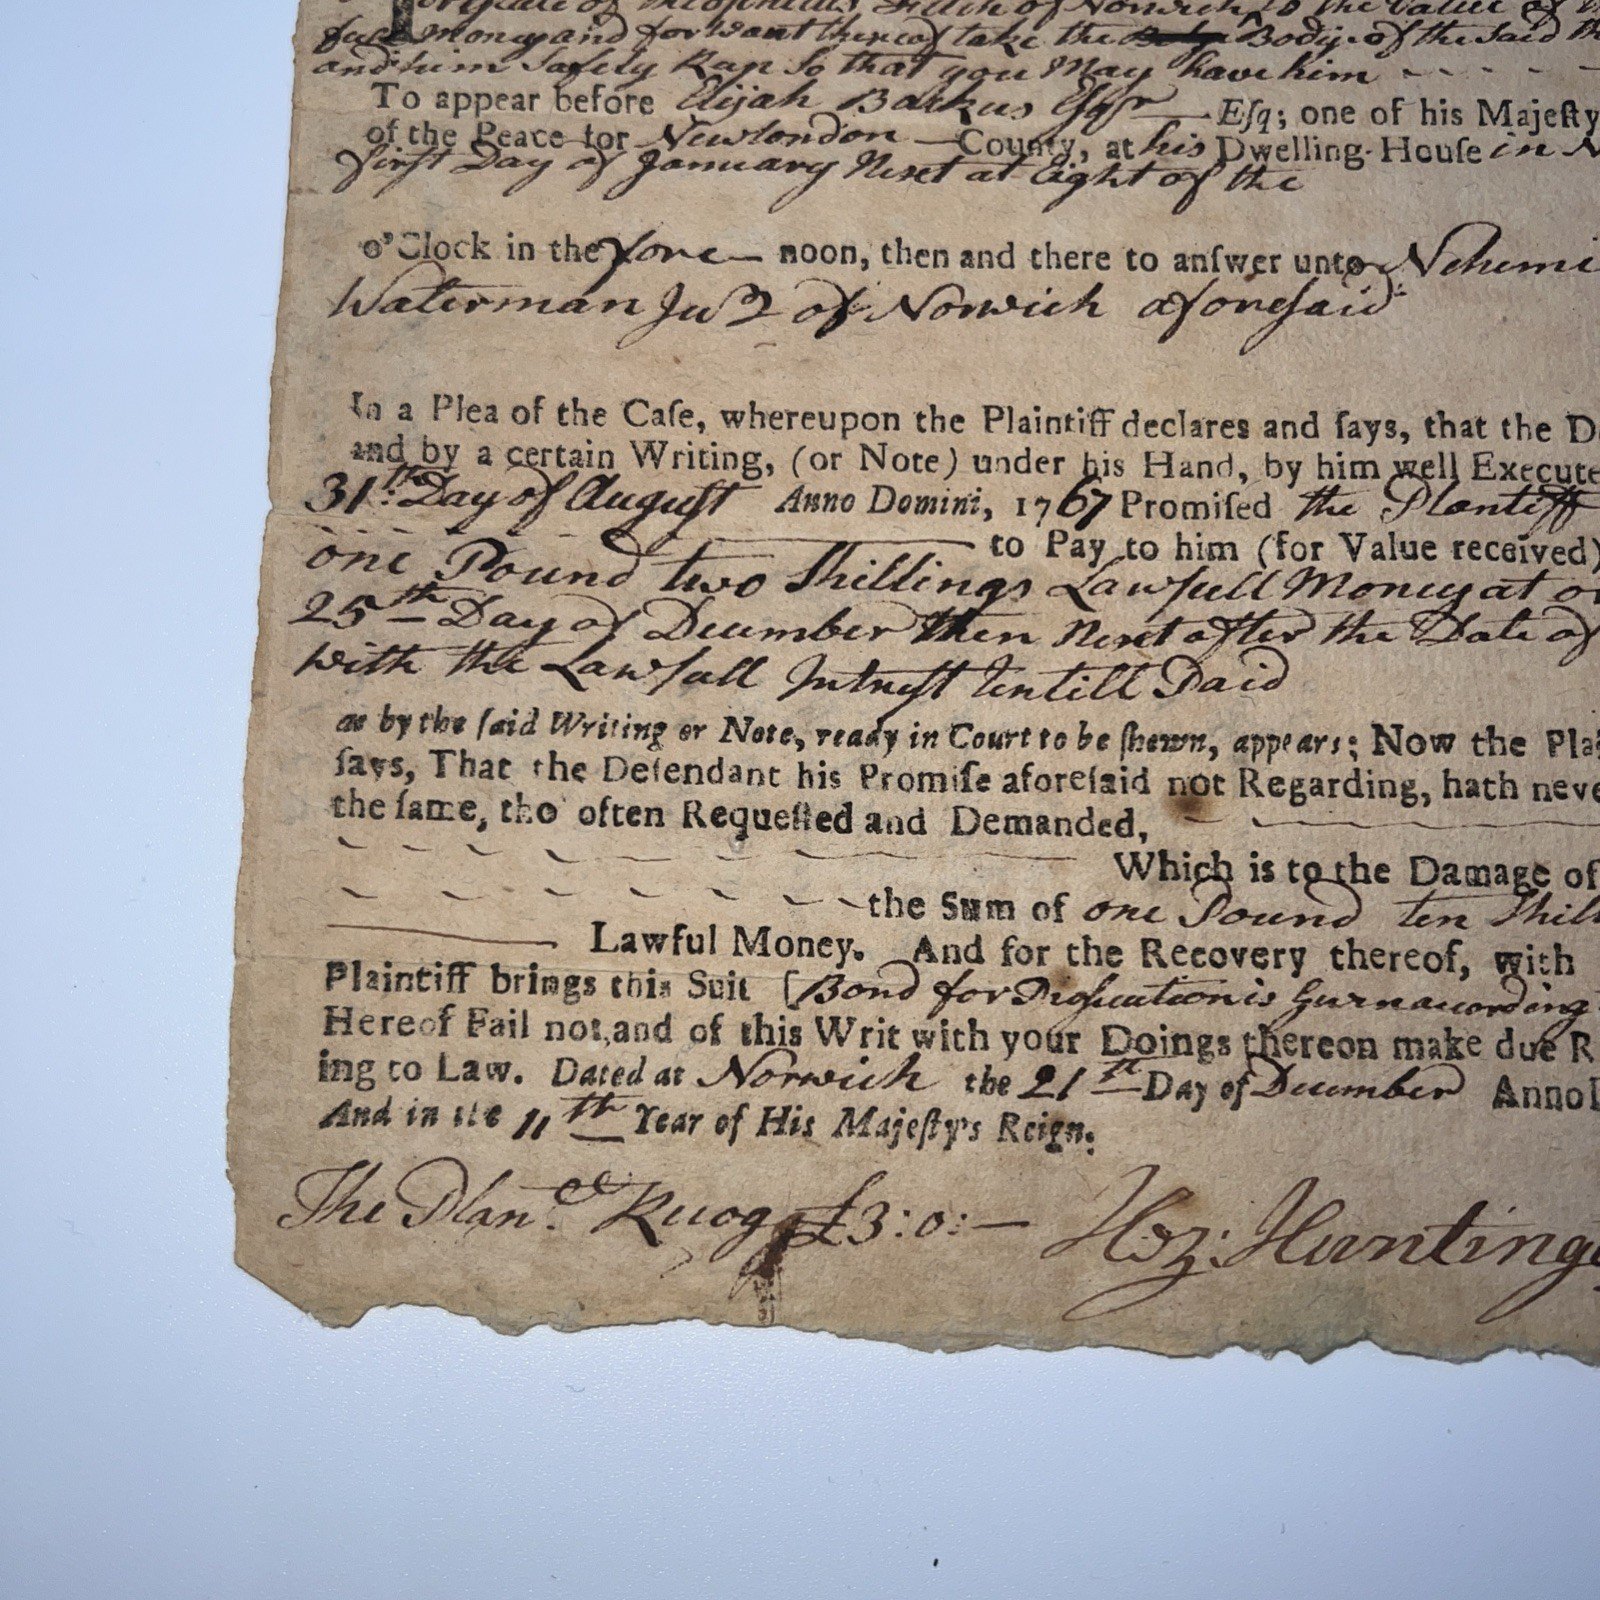 or Estate of Theophilus Fitch of Norwich to the Value of
full Money and for Want thereof take the Body of the Said
and him Safely Kap So that you May have him - - - -
To appear before Elijah Backus Esqr — Eſq; one of his Majeſty
of the Peace for Newlondon — County, at his Dwelling-Houſe in N
first Day of January Next at Eight of the
o'Clock in the fore — noon, then and there to anſwer unto Nehemi
Waterman Junr of Norwich aforesaid
In a Plea of the Caſe, whereupon the Plaintiff declares and ſays, that the D
and by a certain Writing, (or Note) under his Hand, by him well Execute
31th Day of August Anno Domini, 1767 Promiſed the Plantiff
— to Pay to him (for Value received)
one Pound two Shillings Lawfull Money at or
25th Day of December then Next after the Date of
with the Lawfull Intrest untill Paid
as by the ſaid Writing or Note, ready in Court to be ſhewn, appears; Now the Plai
ſays, That the Defendant his Promiſe aforeſaid not Regarding, hath neve
the ſame, tho' often Requeſted and Demanded,
Which is to the Damage of
the Sum of one Pound ten Shill
Lawful Money. And for the Recovery thereof, with
Plaintiff brings this Suit [Bond for Prosecution is Given according
Hereof Fail not, and of this Writ with your Doings thereon make due R
ing to Law. Dated at Norwich the 21st Day of December Anno D
And in the 11th Year of His Majeſty's Reign.
The Plan. Recog £3:0:—
Hez: Huntingt